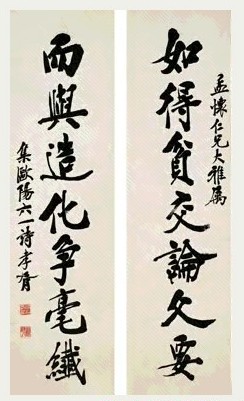 孟懷仁兄大雅屬
如得貧交論久要
而與造化争毫纖
集歐陽六一詩孝胥